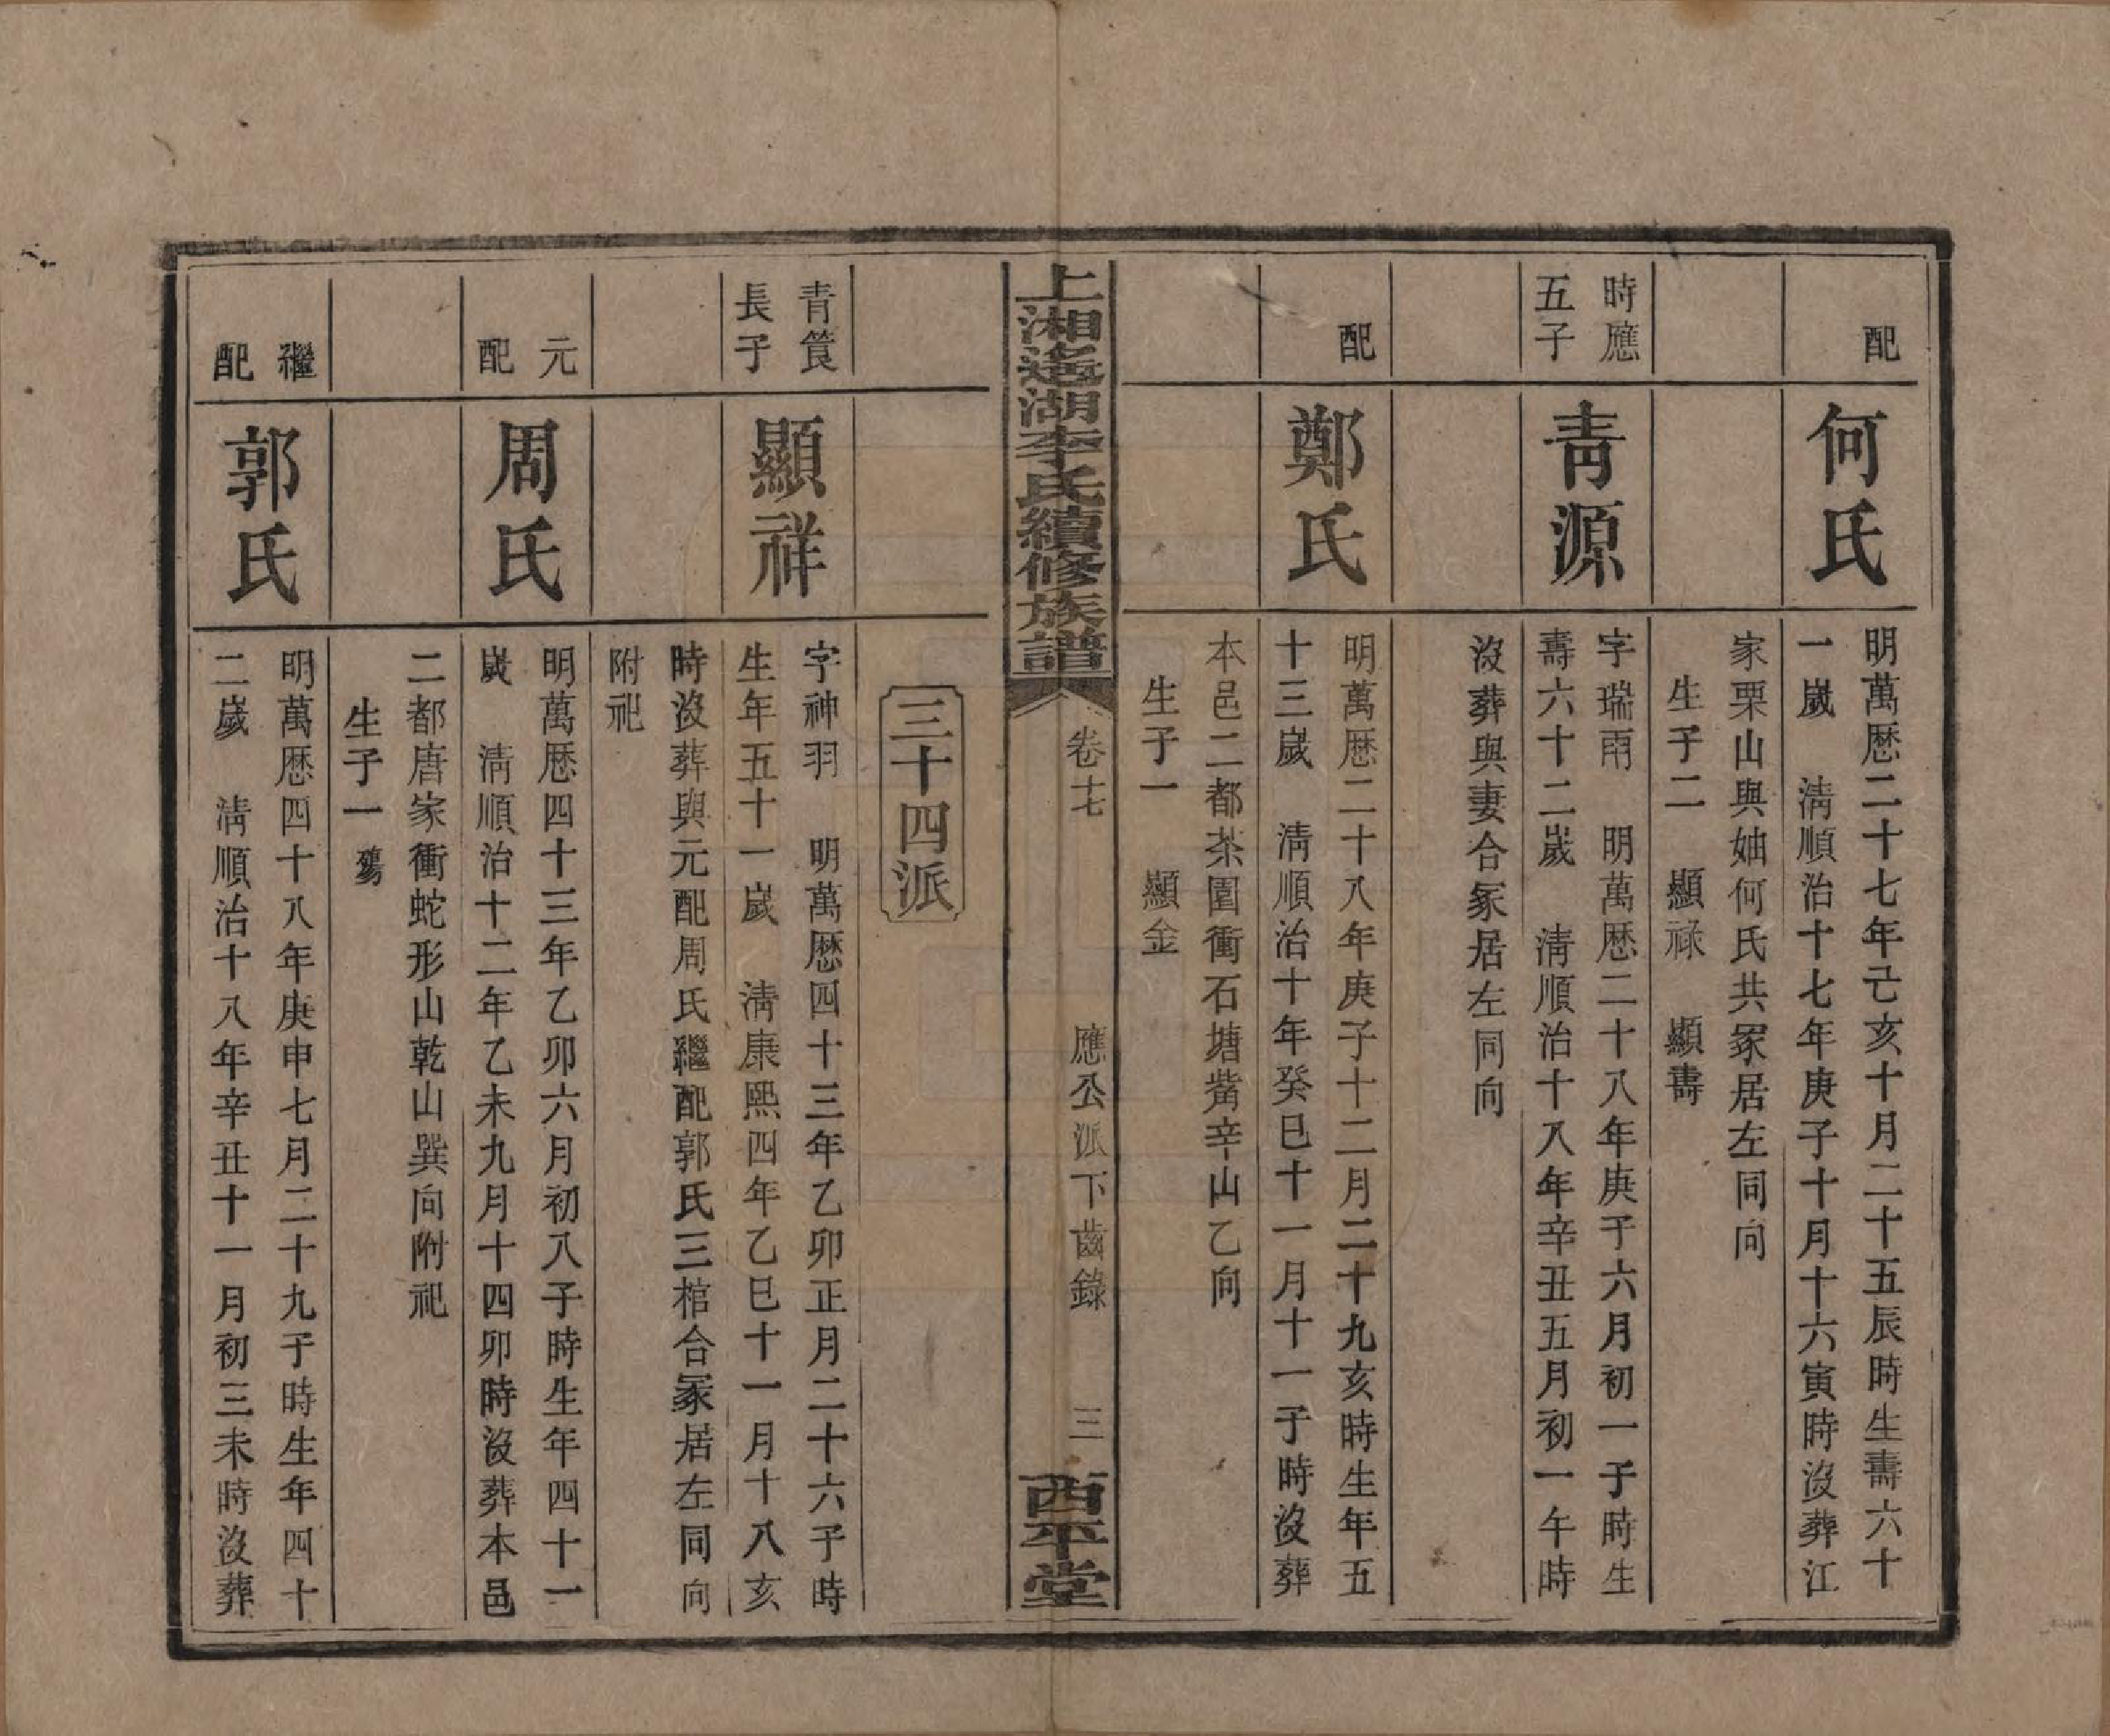 配
何氏
明萬厯二十七年己亥十月二十五辰時生壽六十
一嵗　清順治十七年庚子十月十六寅時沒葬江
家栗山與妯何氏共冢居左同向
生子二　顯祿　顯壽
時應
五子
青源
字瑞雨　明萬厯二十八年庚子六月初一子時生
壽六十二嵗　清順治十八年辛丑五月初一午時
沒葬與妻合冢居左同向
配
鄭氏
明萬厯二十八年庚子十二月二十九亥時生年五
十三嵗　清順治十年癸巳十一月十一子時沒葬
本邑二都茶園衝石塘觜辛山乙向
生子一　顯金
上湘遙湖李氏續修族譜
卷十七
應公派下齒錄
三
西平堂
三十四派
青篔
長子
顯祥
字神羽　明萬厯四十三年乙卯正月二十六子時
生年五十一嵗　清康熙四年乙巳十一月十八亥
時沒葬與元配周氏繼配郭氏三棺合冢居左同向
附祀
元
配
周氏
明萬厯四十三年乙卯六月初八子時生年四十一
嵗　清順治十二年乙未九月十四卯時沒葬本邑
二都唐家衝蛇形山乾山巽向附祀
生子一　殤
繼
配
郭氏
明萬厯四十八年庚申七月二十九子時生年四十
二嵗　清順治十八年辛丑十一月初三未時沒葬